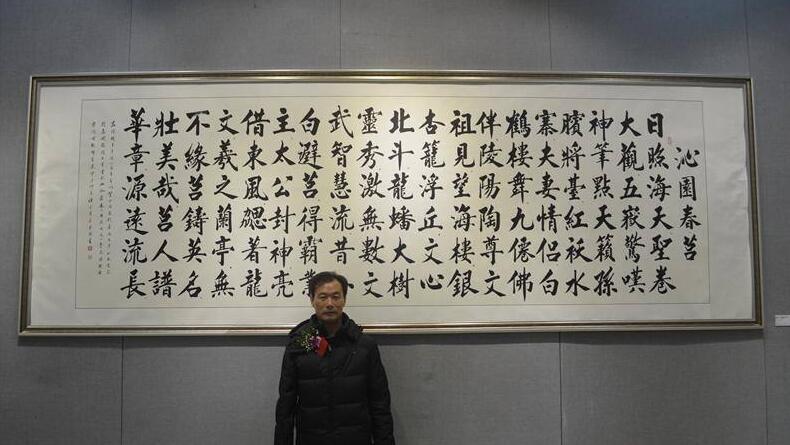 沁園春莒
日照海天聖卷
大觀五嶽驚嘆
神筆點天籟孫
臏將臺紅袄水
寨夫妻情侣白
鶴樓舞九僊佛
伴陵陽陶尊文
祖見望海樓銀
杏籠浮丘文心
北斗龍蟠大樹
靈秀激無數文
武智慧流昔
白避莒得霸業
主太公封神亮
借東風勰著龍
文羲之蘭亭無
不緣莒鑄英名
壯美哉莒人譜
華章源遠流長